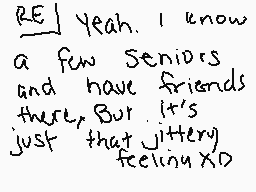 RE Yeah. I know
a few seniors
and have friends
there, But it's
just that jittery
feeling XD